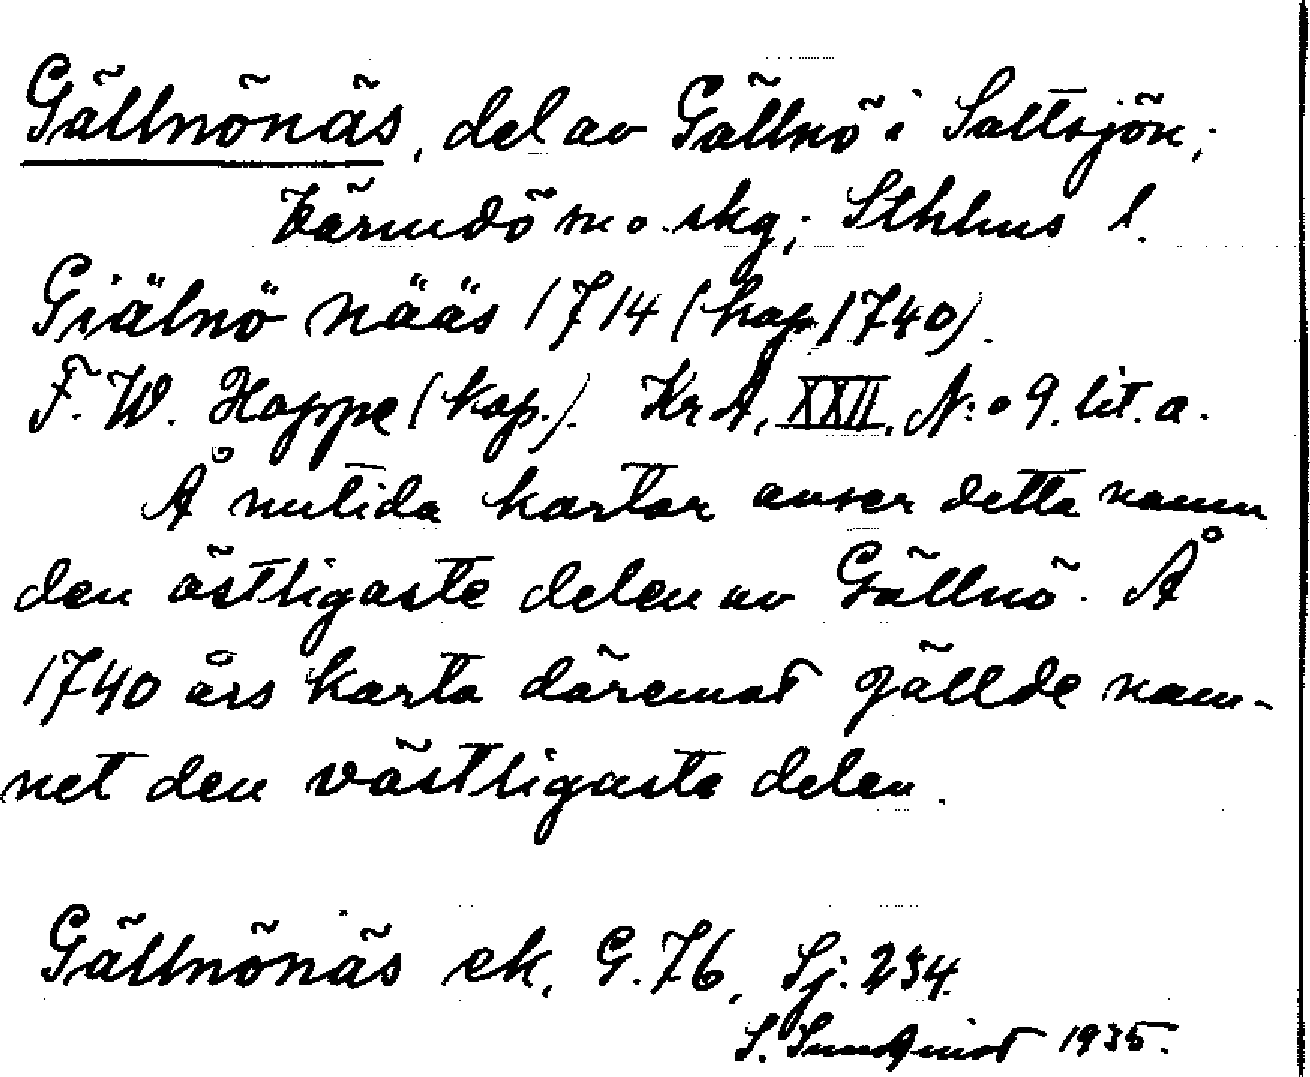 Gällnönäs, del av Gällnö i Saltsjön,
Värmdö m o. skg; Sthlms l.
Giälnö nääs 1714 (kop 1740).
F. W. Hoppe (kop.). Kr A, XXII, N:o 9. lit. a.
Å nutida kartor avser detta namn
den östligaste delen av Gällnö. Å
1740 års karta däremot gällde nam-
net den västligaste delen.
Gällnönäs ek, G. 76, Sj: 234.
S. Sundqvist 1935.